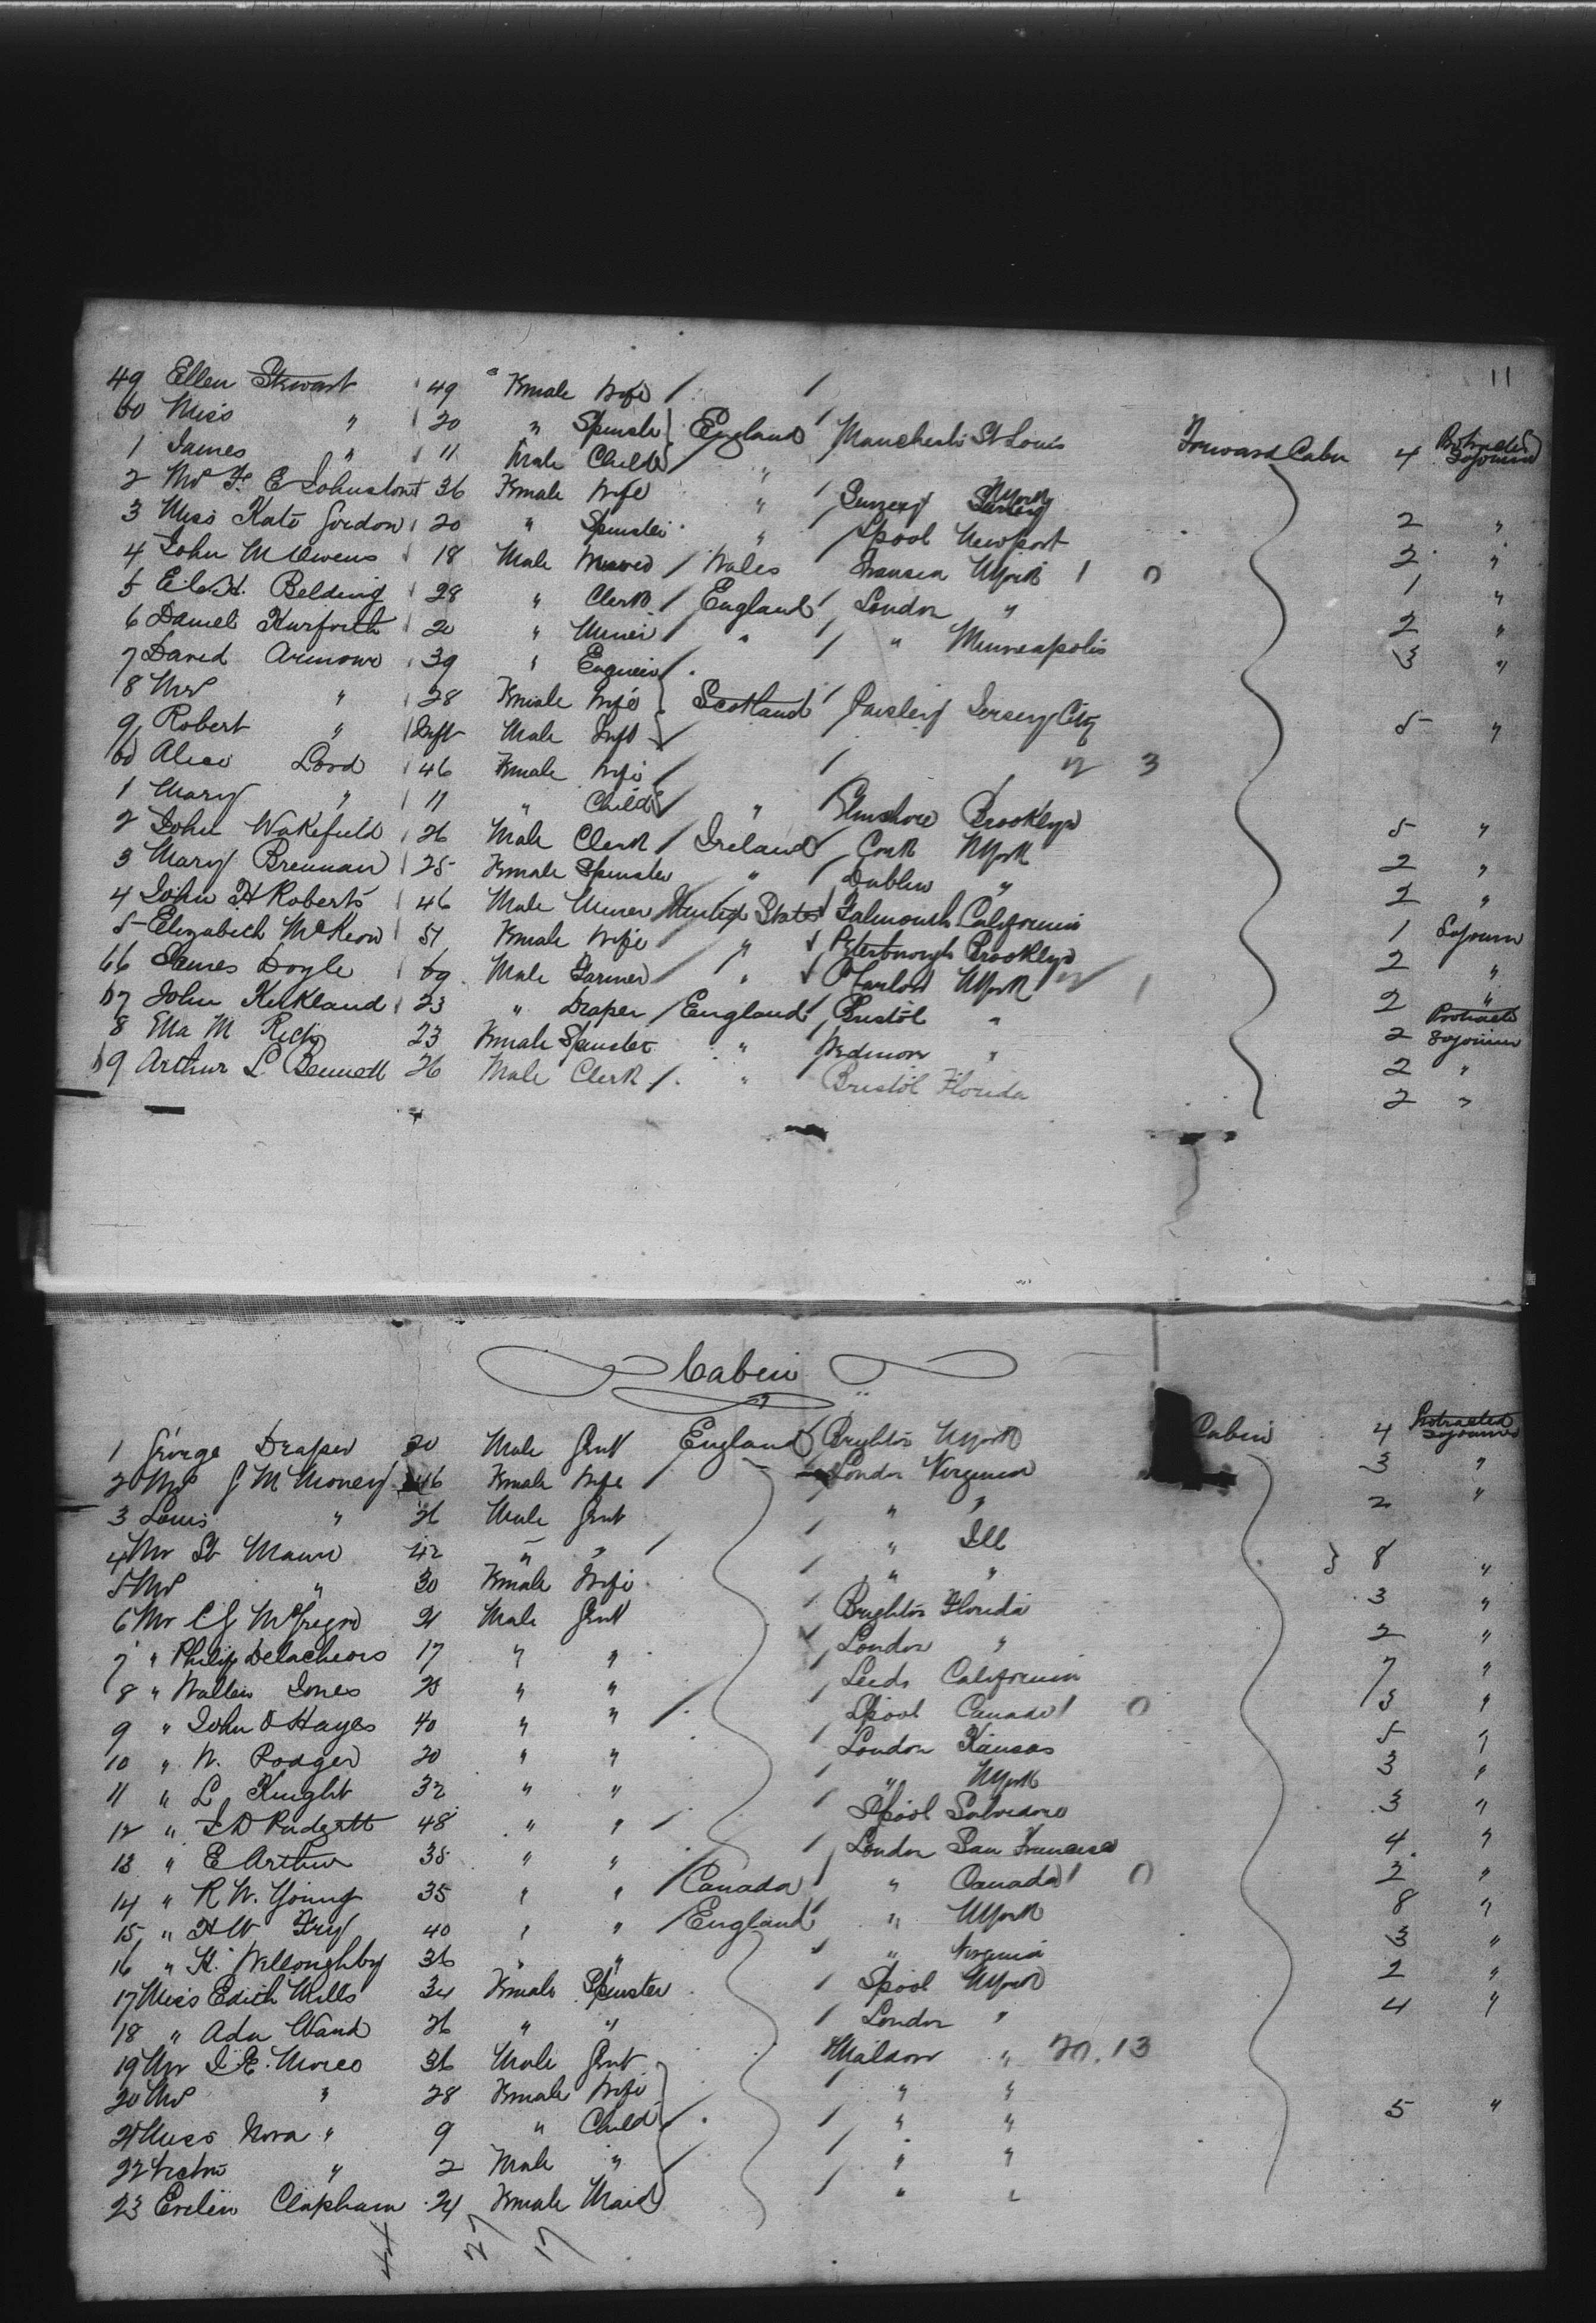 11
49 Ellen Stewart 49 Female Wife
50 Miss " 20 " Spinster England Manchester St Louis Forward Cabin 4 Protracted Sojourn
1 James " 11 Male Child "
2 Mrs F. E Johnston 36 Female Wife " Surrey NYork 2 "
3 Miss Kate Gordon 20 " Spinster " Lpool Newport 2 "
4 John M Owens 18 Male Wales Swansea NYork 1 0 1 "
5 Belding 28 " Clerk England London " 2 "
6 Daniel 20 " Miner " " Minneapolis 3 "
7 David Armour 39 " Engineer
8 Mrs " 28 Female Wife Scotland Paisley Jersey City 5 "
9 Robert " Inft Male Inft
60 Alice Lord 46 Female Wife 3
1 Mary " 11 " Child " Brooklyn 5 "
2 John Wakefield 26 Male Clerk Ireland Cork NYork 2 "
3 Mary Brennan 25 Female Spinster " Dublin " 2 "
4 John H Roberts 46 Male Miner United States Falmouth California 1 Sojourn
5 Elizabeth McKeow 51 Female Wife " Peterborough Brooklyn 2 "
66 James Doyle 69 Male Farmer " Carlow NYork 1 2 "
67 John Kirkland 23 " Draper England Bristol " 2 Protracted Sojourn
8 Ella M 23 Female Spinster " Wedmore " 2 "
69 Arthur L Bennett 26 Male Clerk " Bristol Florida 2 "
Cabin
1 George Draper 20 Male Gent England Brighton NYork Cabin 4 Protracted Sojourn
2 Mrs G M Money 46 Female Wife London Virginia 3 "
3 Louis " 26 Male Gent " " 2 "
4 Mr St Maur 42 " " " Ill 8 "
5 Mrs " 30 Female Wife " "
6 Mr C G McGregor 21 Male Gent Brighton Florida 3 "
7 " Philip 17 " " London " 2 "
8 " Jones 25 " " Leeds California 7 "
9 " John O Hayes 40 " " Lpool Canada 0 3 "
10 " W. Rodger 20 " " London Kansas 5 "
11 " L Knight 32 " " " NYork 3 "
12 " 48 " " Lpool 3 "
13 " E Arthur 38 " " London San Francisco 4 "
14 " R W. Young 35 " " Canada " Canada 0 2 "
15 " H W Fry 40 " " England " NYork 8 "
16 " H. Willoughby 36 " " " Virginia 3 "
17 Miss Edith Mills 34 Female Spinster Lpool NYork 2 "
18 " Ada Ward 26 " " London " 4 "
19 Mr 36 Male Gent Maldon " 20. 13
20 Mrs " 28 Female Wife " "
21 Miss Nora " 9 " Child " " 5 "
22 Victor " 2 Male " " "
23 Evelin Clapham 24 Female Maid " "
27 17